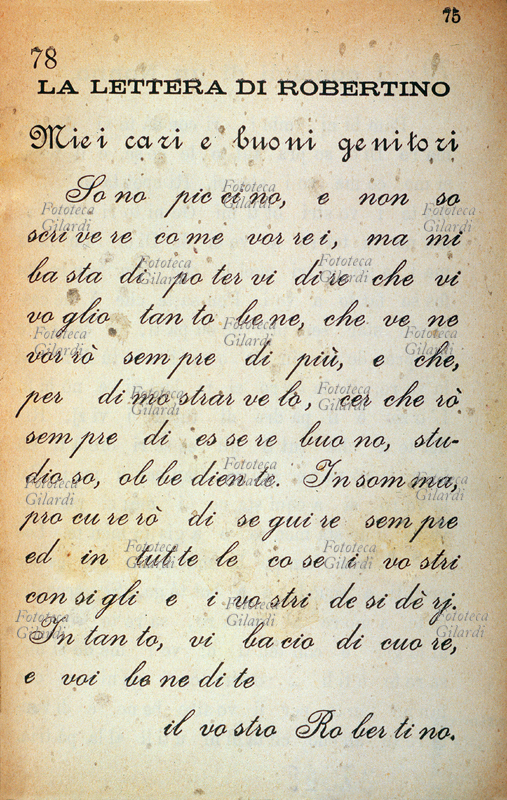 75
78
LA LETTERA DI ROBERTINO
Miei cari e buoni genitori
So no pic ci no, e non so
scri ve re co me vor re i, ma mi
ba sta di po ter vi di re che vi
vo glio tan to be ne, che ve ne
vor rò sem pre di più, e che,
per di mo strar ve lo, cer che rò
sem pre di es se re buo no, stu-
dio so, ob be dien te. In som ma,
pro cu re rò di se gui re sem pre
ed in tut te le co se i vo stri
con si gli e i vo stri de si dè rj.
In tan to, vi ba cio di cuo re,
e voi be ne di te
il vo stro Ro ber ti no.
Fototeca Gilardi